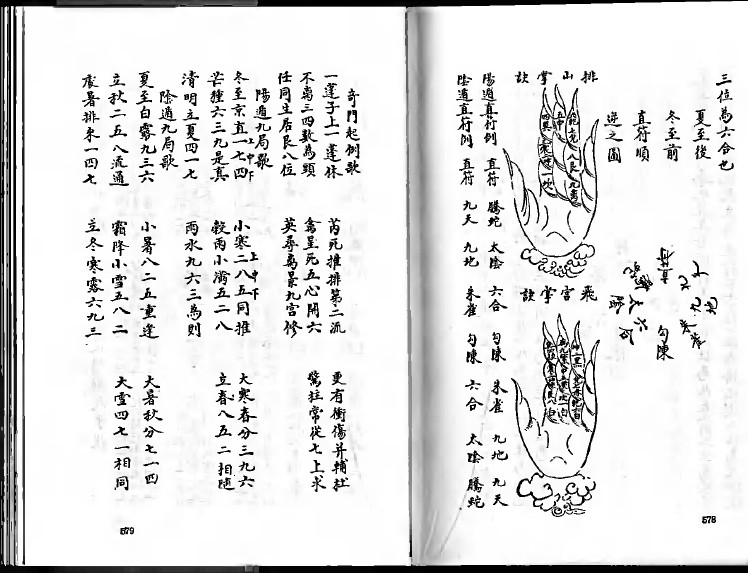 三位為六合也
夏至後
冬至前
直符順
逆之圖
排山掌訣
飛宮掌訣
陽遁直符例 直符 螣蛇 太陰 六合 勾陳 朱雀 九地 九天
陰遁直符例 直符 九天 九地 朱雀 勾陳 六合 太陰 螣蛇
578
奇門起例歌
一蓬子上一蓬休 芮死推排第二流 更有衝傷并輔杜
不离三四數為頭 禽星死五心開六 驚柱常從七上求
任同生居艮八位 英尋离景九宮修
陽遁九局歌
冬至京直一七四 小寒二八五同推 大寒春分三九六
上中下 上中下
芒種六三九是真 穀雨小滿五二八 立春八五二相隨
清明立夏四一七 雨水九六三為則
陰遁九局歌
夏至白露九三六 小暑八二五重逢 大暑秋分七一四
立秋二五八流通 霜降小雪五八二 大雪四七一相同
處暑排來一四七 立冬寒露六九三
579